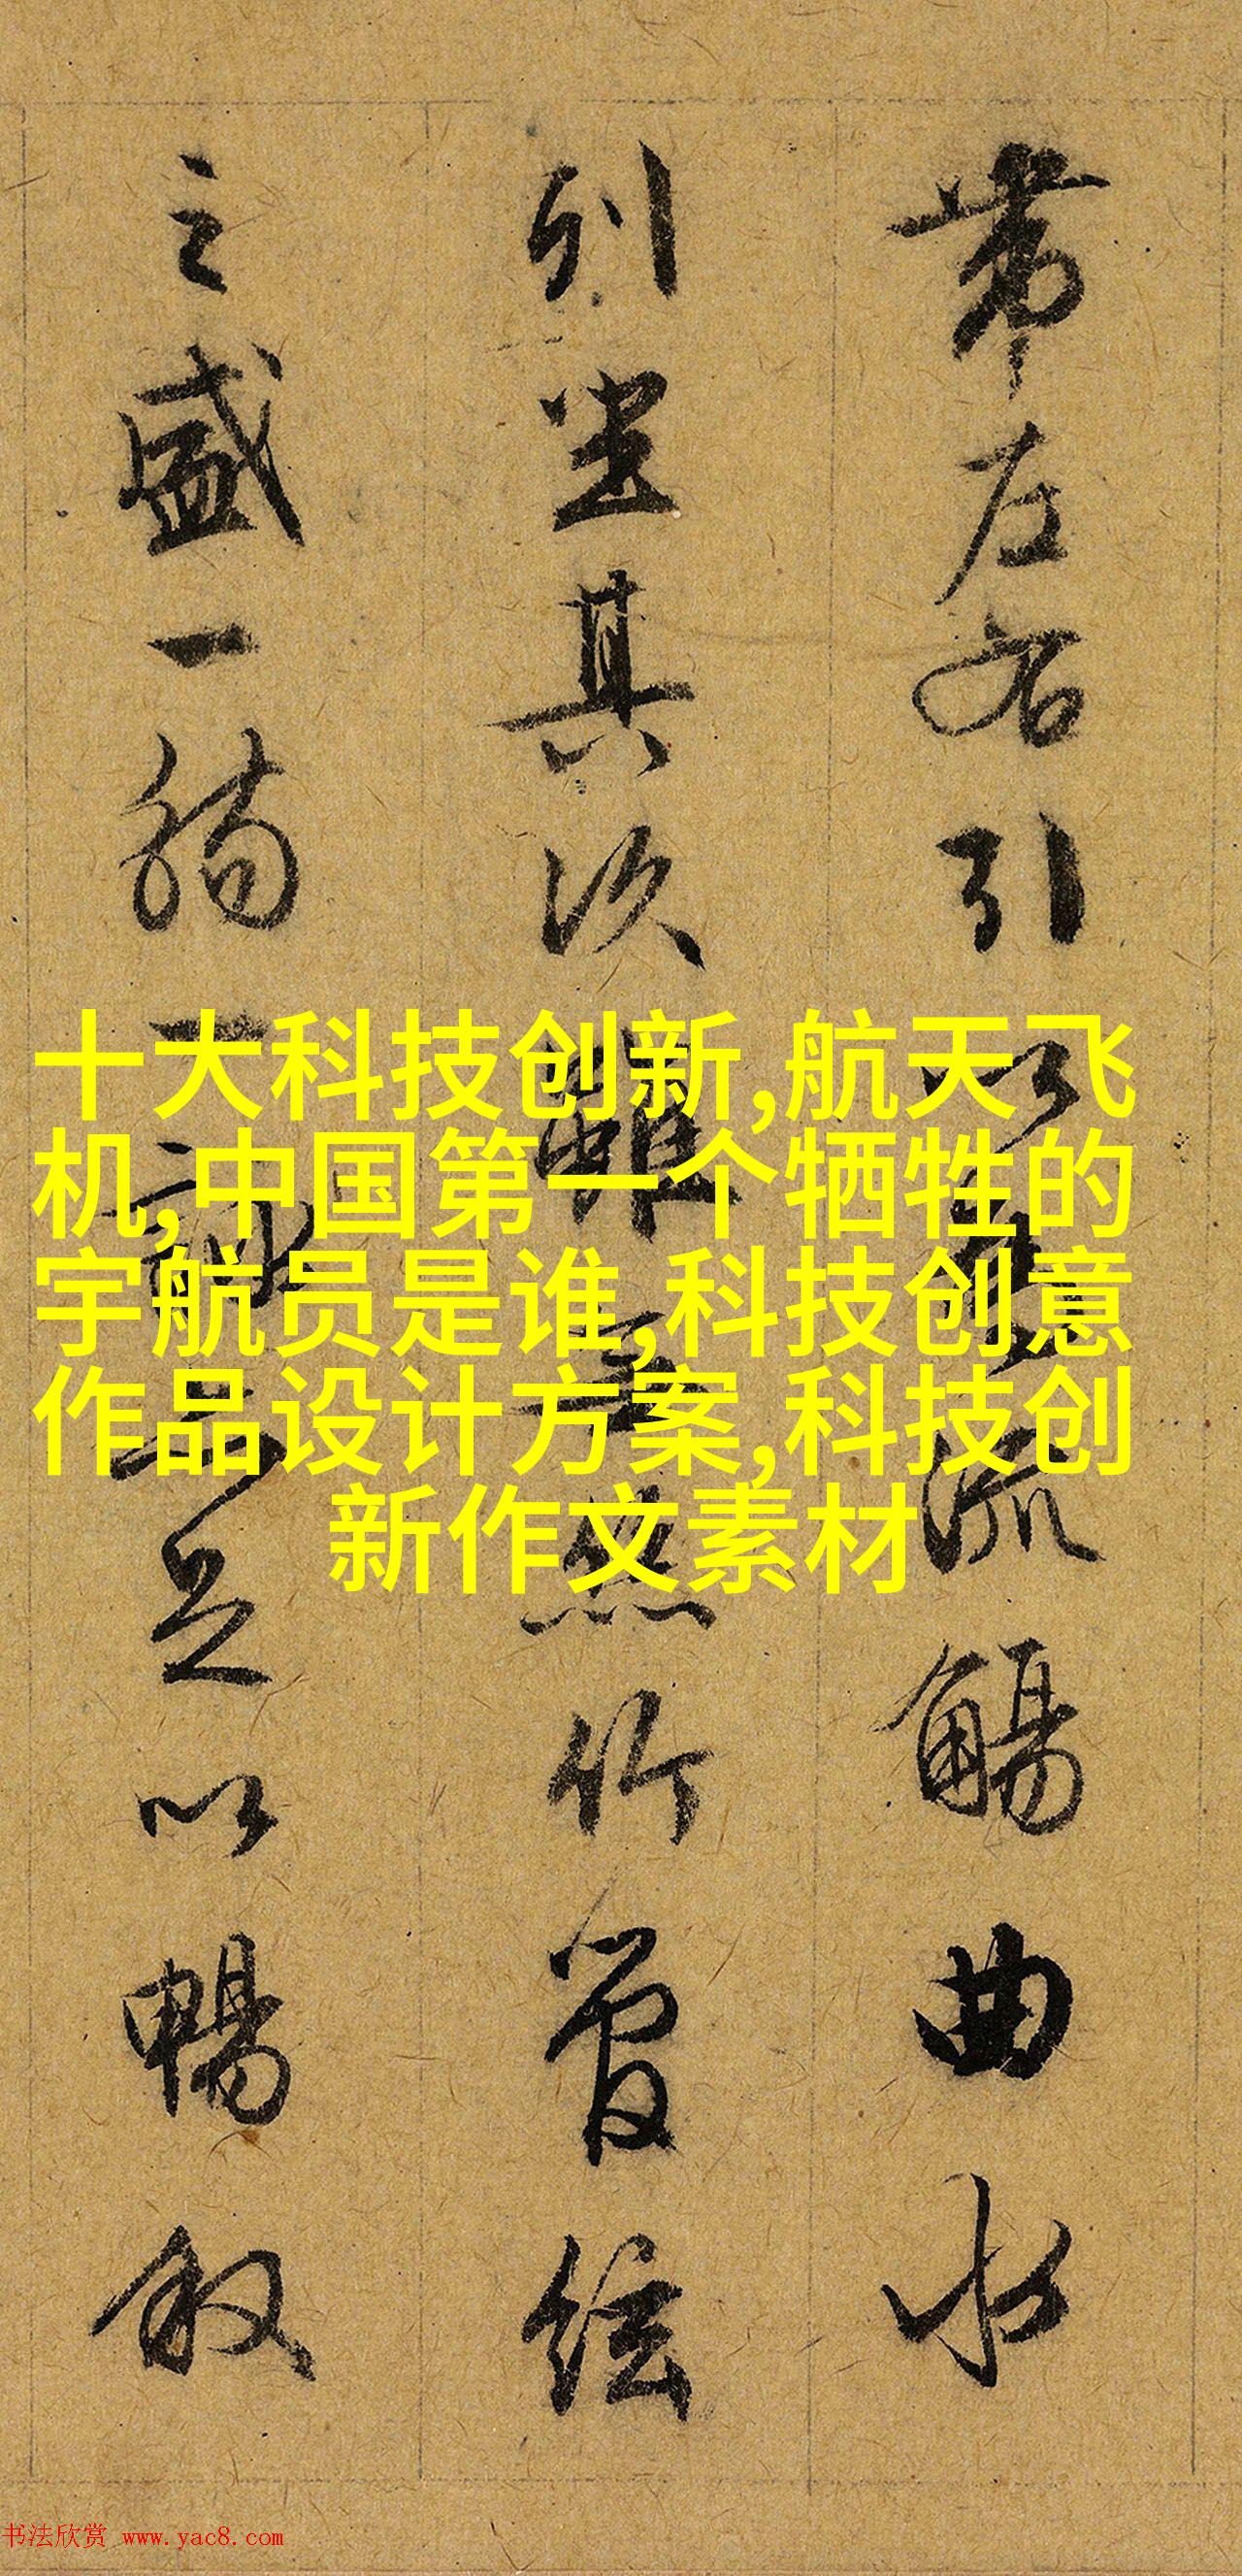 帶左右引以為流觴曲水
列坐其次雖無絲竹管絃
之盛一觴一詠亦足以暢敘
十大科技创新,航天飞
机,中国第一个牺牲的
宇航员是谁,科技创意
作品设计方案,科技创
新作文素材
书法欣赏 www.yac8.com